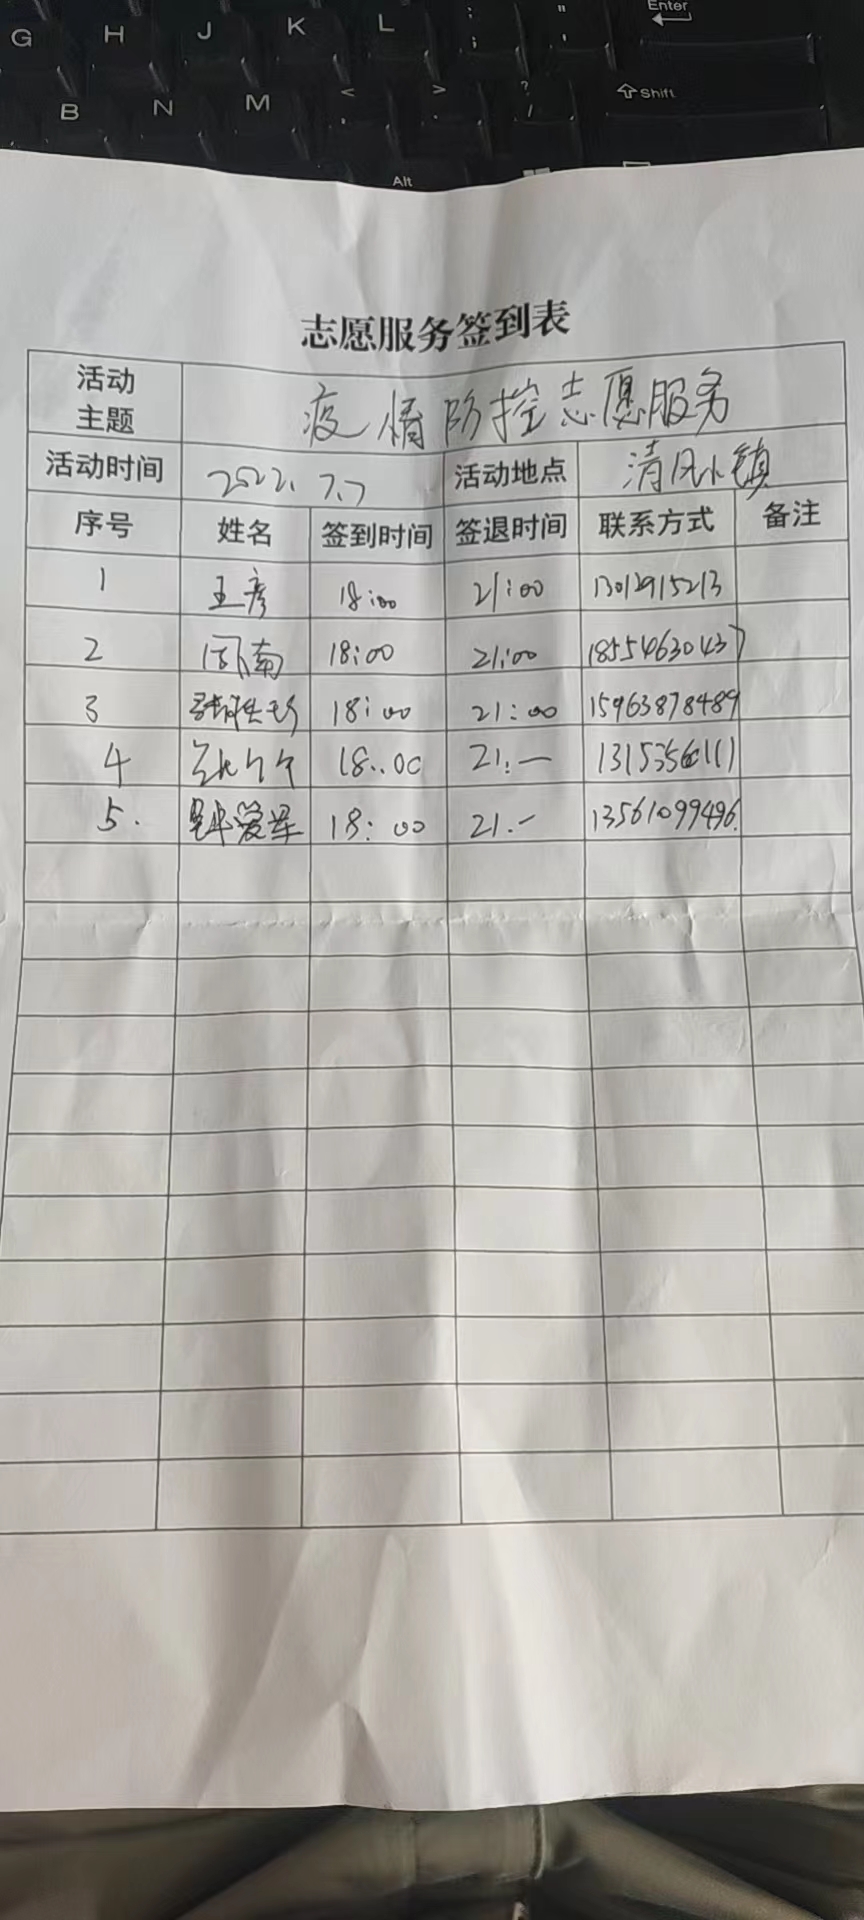 G H J K L : ; " ' Enter
B N M < , > . ? / Shift
Alt
志愿服务签到表
活动主题 疫情防控志愿服务
活动时间 2022.7.7 活动地点 清风小镇
序号 姓名 签到时间 签退时间 联系方式 备注
1 王彦 18:00 21:00 13012915213
2 南 18:00 21:00 18554630437
3 18:00 21:00 15963878489
4 18..00 21:—
5. 18:00 21.- 13561099496.